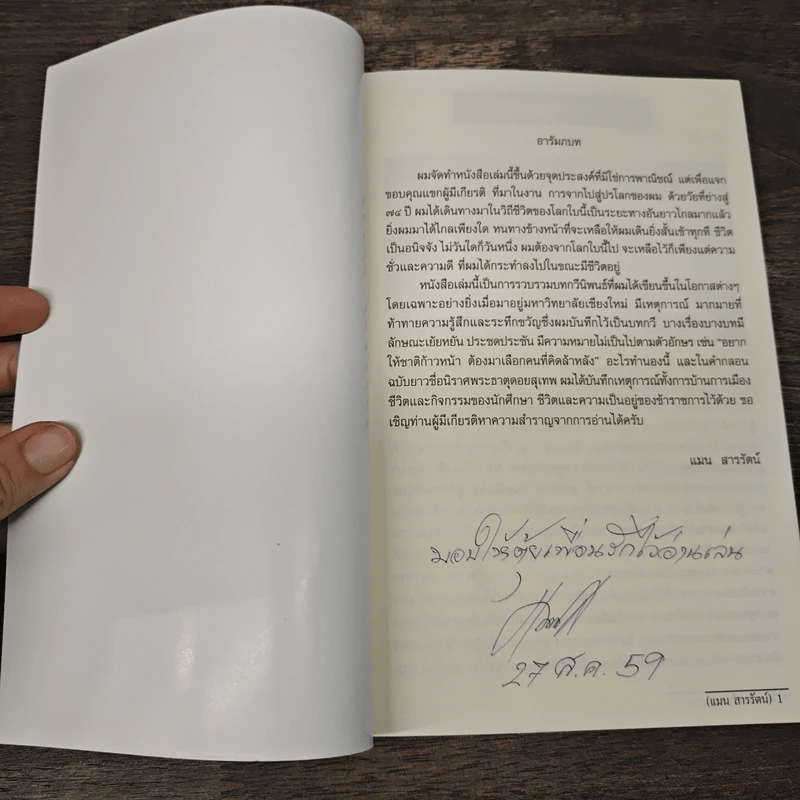 อารัมภบท
ผมจัดทำหนังสือเล่มนี้ขึ้นด้วยจุดประสงค์ที่มิใช่การพาณิชณ์ แต่เพื่อแจก
ขอบคุณแขกผู้มีเกียรติ ที่มาในงาน การจากไปสู่ปรโลกของผม ด้วยวัยที่ย่างสู่
๗๔ ปี ผมได้เดินทางมาในวิถีชีวิตของโลกใบนี้เป็นระยะทางอันยาวไกลมากแล้ว
ยิ่งผมมาได้ไกลเพียงใด หนทางข้างหน้าที่จะเหลือให้ผมเดินยิ่งสั้นเข้าทุกที ชีวิต
เป็นอนิจจัง ไม่วันใดก็วันหนึ่ง ผมต้องจากโลกใบนี้ไป จะเหลือไว้ก็เพียงแต่ความ
ชั่วและความดี ที่ผมได้กระทำลงไปในขณะมีชีวิตอยู่
หนังสือเล่มนี้เป็นการรวบรวมบทกวีนิพนธ์ที่ผมได้เขียนขึ้นในโอกาสต่างๆ
โดยเฉพาะอย่างยิ่งเมื่อมาอยู่มหาวิทยาลัยเชียงใหม่ มีเหตุการณ์ มากมายที่
ท้าทายความรู้สึกและระทึกขวัญซึ่งผมบันทึกไว้เป็นบทกวี บางเรื่องบางบทมี
ลักษณะเย้ยหยัน ประชดประชัน มีความหมายไม่เป็นไปตามตัวอักษร เช่น “อยาก
ให้ชาติก้าวหน้า ต้องมาเลือกคนที่คิดล้าหลัง” อะไรทำนองนี้ และในคำกลอน
ฉบับยาวชื่อนิราศพระธาตุดอยสุเทพ ผมได้บันทึกเหตุการณ์ทั้งการบ้านการเมือง
ชีวิตและกิจกรรมของนักศึกษา ชีวิตและความเป็นอยู่ของข้าราชการไว้ด้วย ขอ
เชิญท่านผู้มีเกียรติหาความสำราญจากการอ่านได้ครับ
แมน สารรัตน์
มอบให้ตุ้ยเพื่อนรักไว้อ่านเล่น
27 ส.ค. 59
(แมน สารรัตน์) 1